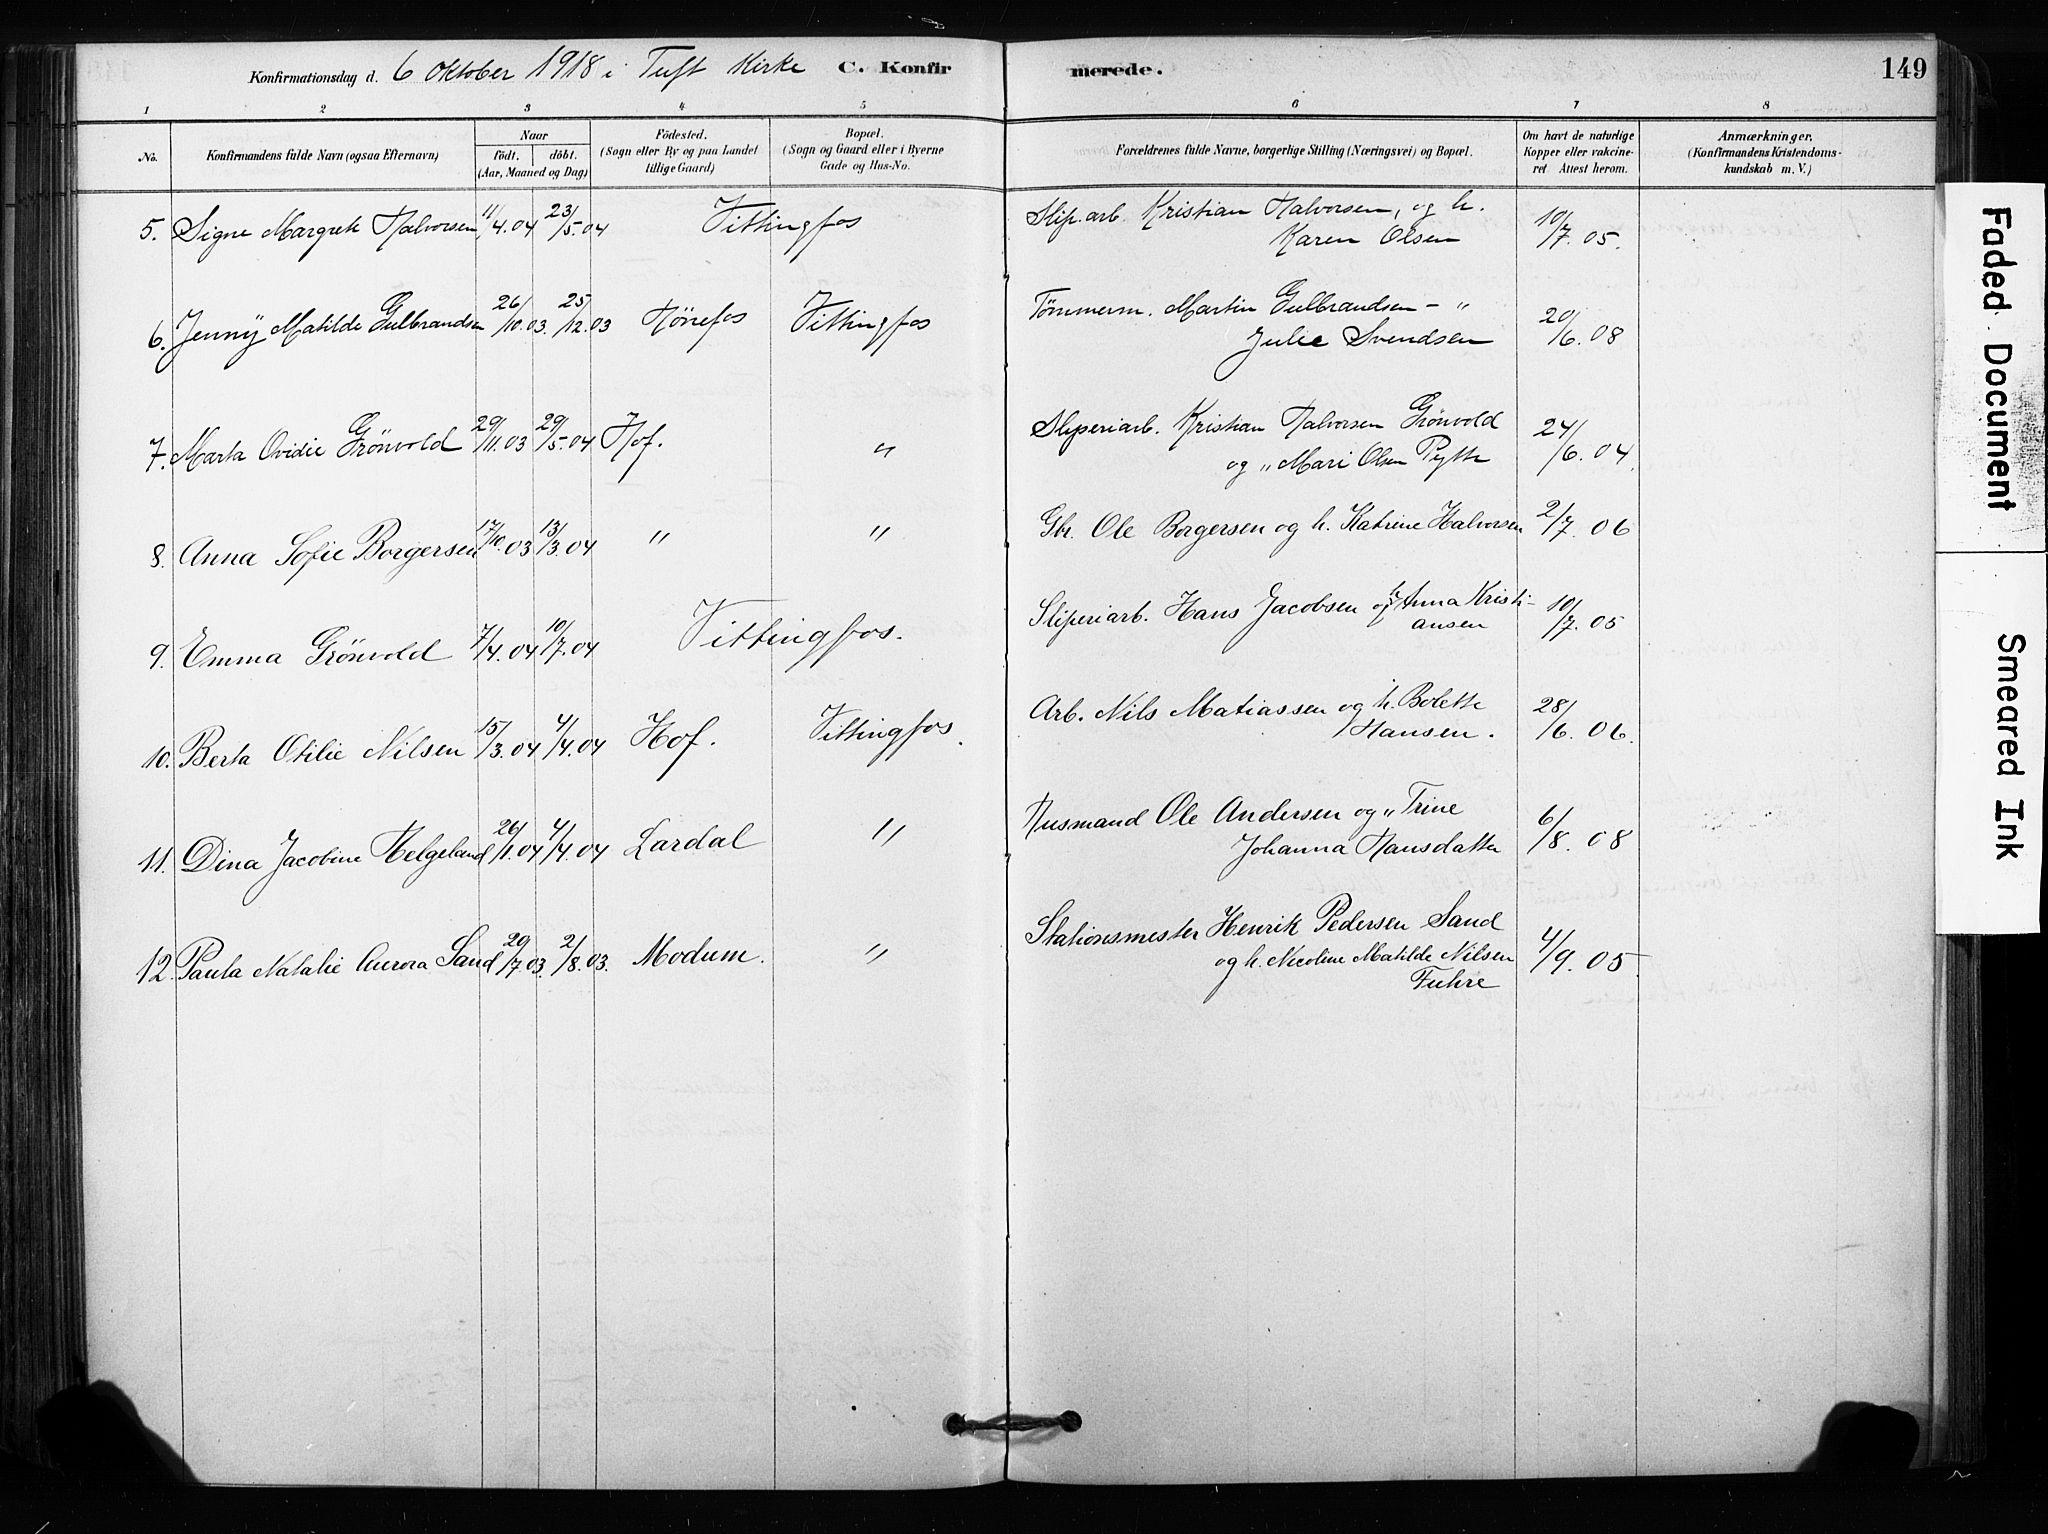 Konfirmationsdag d. 6 Oktober 1918 i Tuft Kirke C. Konfirmerede. 149
1 2 3 4 5 6 7 8
No. Konfirmandens fulde Navn (ogsaa Efternavn) Naar födt. döbt. (Aar, Maaned og Dag) Födested. (Sogn eller By og paa Landet tillige Gaard) Bopæl. (Sogn og Gaard eller i Byerne Gade og Hus-No. Forældrenes fulde Navne, borgerlige Stilling (Næringsvei) og Bopæl. Om havt de naturlige Kopper eller vakcineret Attest herom. Anmærkninger. (Konfirmandens Kristendomskundskab m. V.)
5. Signe Margrete Halvorsen 11/4.04 23/5.04 Vittingfos Slip.arb. Kristian Halvorsen, og h. 10/7.05.
Karen Olsen
6. Jenny Matilde Gulbrandsen 26/10.03. 25/12.03 Hönefos Vittingfos Tømmerm. Martin Gulbrandsen – " 20/6.08
Julie Svendsen
7. Marta Ovidie Grönvold 29/11.03 29/5.04 Hof. " Sliperiarb. Kristian Halvorsen Grönvold 24/6.04.
og " Mari Olsen Pytte
8. Anna Sofie Borgersen 17/10.03 13/3.04 " " Gbr. Ole Borgersen og h. Katrine Halvorsen 2/7.06
9. Emma Grönvold 7/4.04 10/7.04 Vittingfos. Sliperiarb. Hans Jacobsen og h. Anna Kristi- 10/7.05
ansen
10. Berta Otilie Nilsen 15/3.04 4/4.04 Hof. Vittingfos. Arb. Nils Matiassen og h. Bolette 28/6.06.
Hansen.
11. Dina Jacobine Helgeland 26/1.04 4/4.04 Lardal " Husmand Ole Andersen og " Trine 6/8.08
Johanna Hansdatter
12. Paula Natalie Aurora Sand 29/7.03. 2/8.03. Modum. " Stationsmester Henrik Pedersen Sand 4/9.05
og h. Nicoline Matilde Nilsen
Fuhre
Faded Document
Smeared Ink